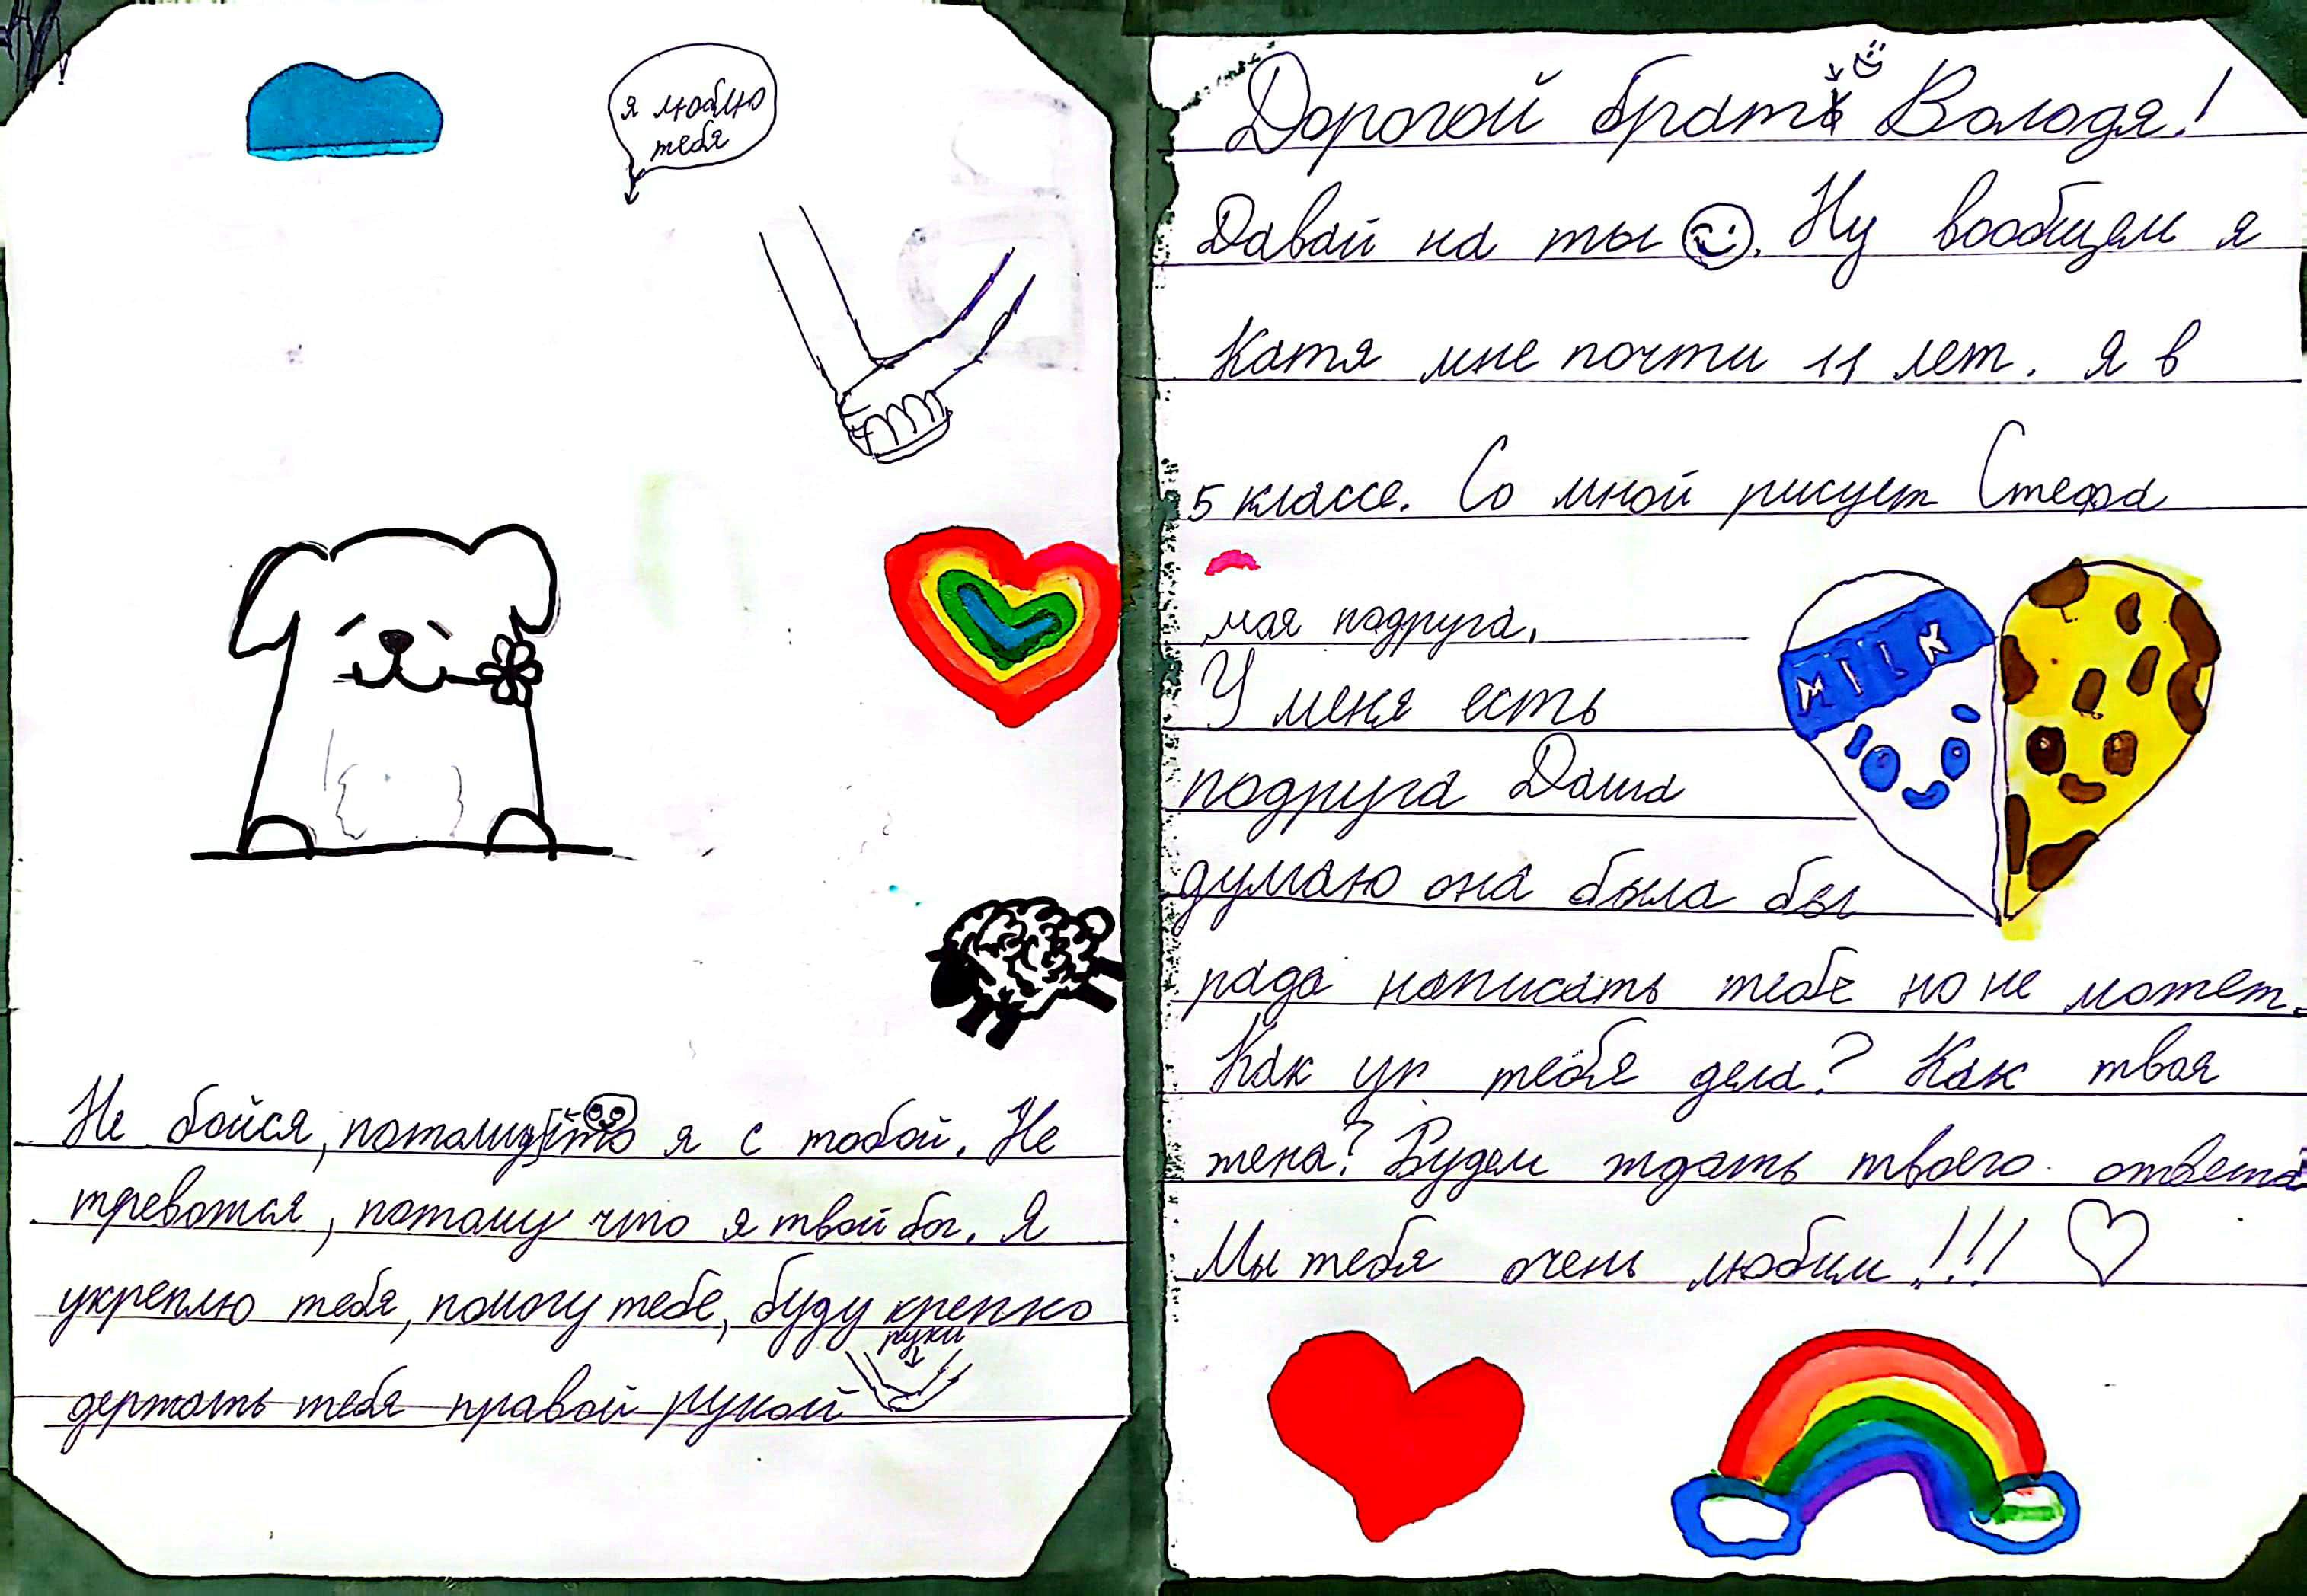 я люблю
тебя
Не бойся, потому что я с тобой. Не
тревожся, потому что я твой бог. Я
укреплю тебя, помогу тебе, буду крепко
руки
держать тебя правой рукой
Дорогой брат Володя!
Давай на ты. Ну вообщем я
Катя мне почти 11 лет. Я в
5 классе. Со мной рисует Стефа
моя подруга.
MILK
У меня есть
подруга Даша
думаю она была бы
рада написать тебе но не может.
Как у тебя дела? Как твоя
жена? Будем ждать твоего ответа
Мы тебя очень любим!!!